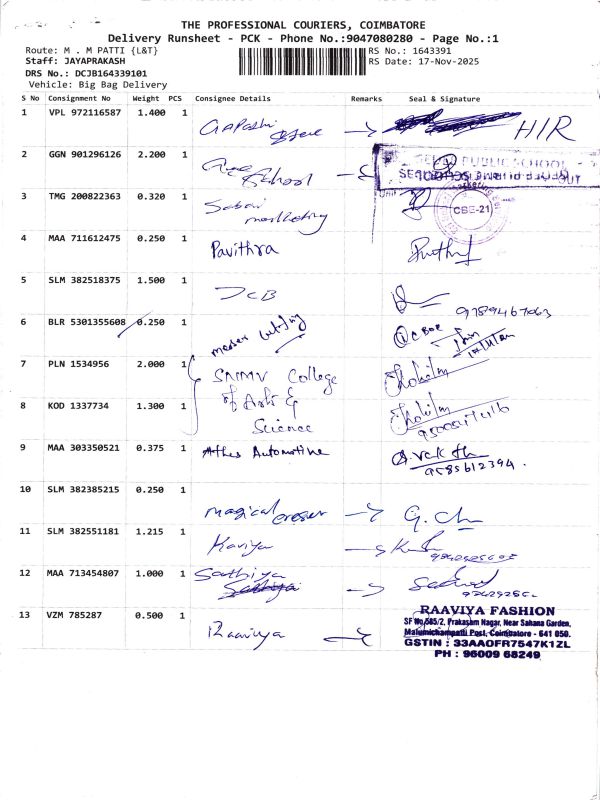 THE PROFESSIONAL COURIERS, COIMBATORE
Delivery Runsheet - PCK - Phone No.:9047080280 - Page No.:1
Route: M . M PATTI {L&T}
RS No.: 1643391
Staff: JAYAPRAKASH
RS Date: 17-Nov-2025
DRS No.: DCJB164339101
Vehicle: Big Bag Delivery
S No Consignment No Weight PCS Consignee Details Remarks Seal & Signature
1 VPL 972116587 1.400 1 HIR
2 GGN 901296126 2.200 1 School
PUBLIC SCHOOL
3 TMG 200822363 0.320 1 Sabari marketing
CBE-21
4 MAA 711612475 0.250 1 Pavithra
5 SLM 382518375 1.500 1 JCB
9789467063
6 BLR 5301355608 0.250 1
7 PLN 1534956 2.000 1 SNMV College
of Arts &
8 KOD 1337734 1.300 1
Science
9 MAA 303350521 0.375 1 Athes Automotive
9585612394
10 SLM 382385215 0.250 1 magical
11 SLM 382551181 1.215 1 Kaviya
12 MAA 713454807 1.000 1 Sathiya
13 VZM 785287 0.500 1 Raaviya
RAAVIYA FASHION
SF No.585/2, Prakasam Nagar, Near Sahana Garden,
Malumichampatti Post, Coimbatore - 641 050.
GSTIN : 33AAOFR7547K1ZL
PH : 96009 68249